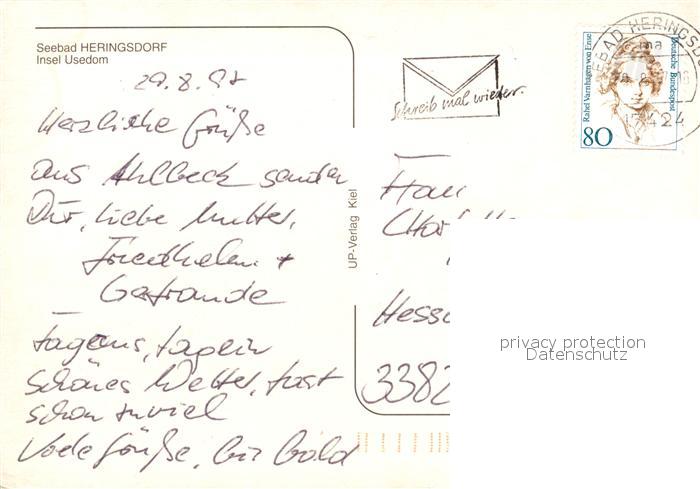 Seebad HERINGSDORF
Insel Usedom
29.8.97
Herzliche Grüße
aus Ahlbeck senden
Dir, liebe Mutter,
Friedhelm +
Gertraude
Tagaus, tagein
schönes Wetter, fast
schon zuviel
Viele Grüße, bis bald
UP-Verlag Kiel
Schreib mal wieder.
Rahel Varnhagen von Ense
Deutsche Bundespost
80
SEEBAD HERINGSDORF
17424
Frau
Hess
3382
privacy protection
Datenschutz